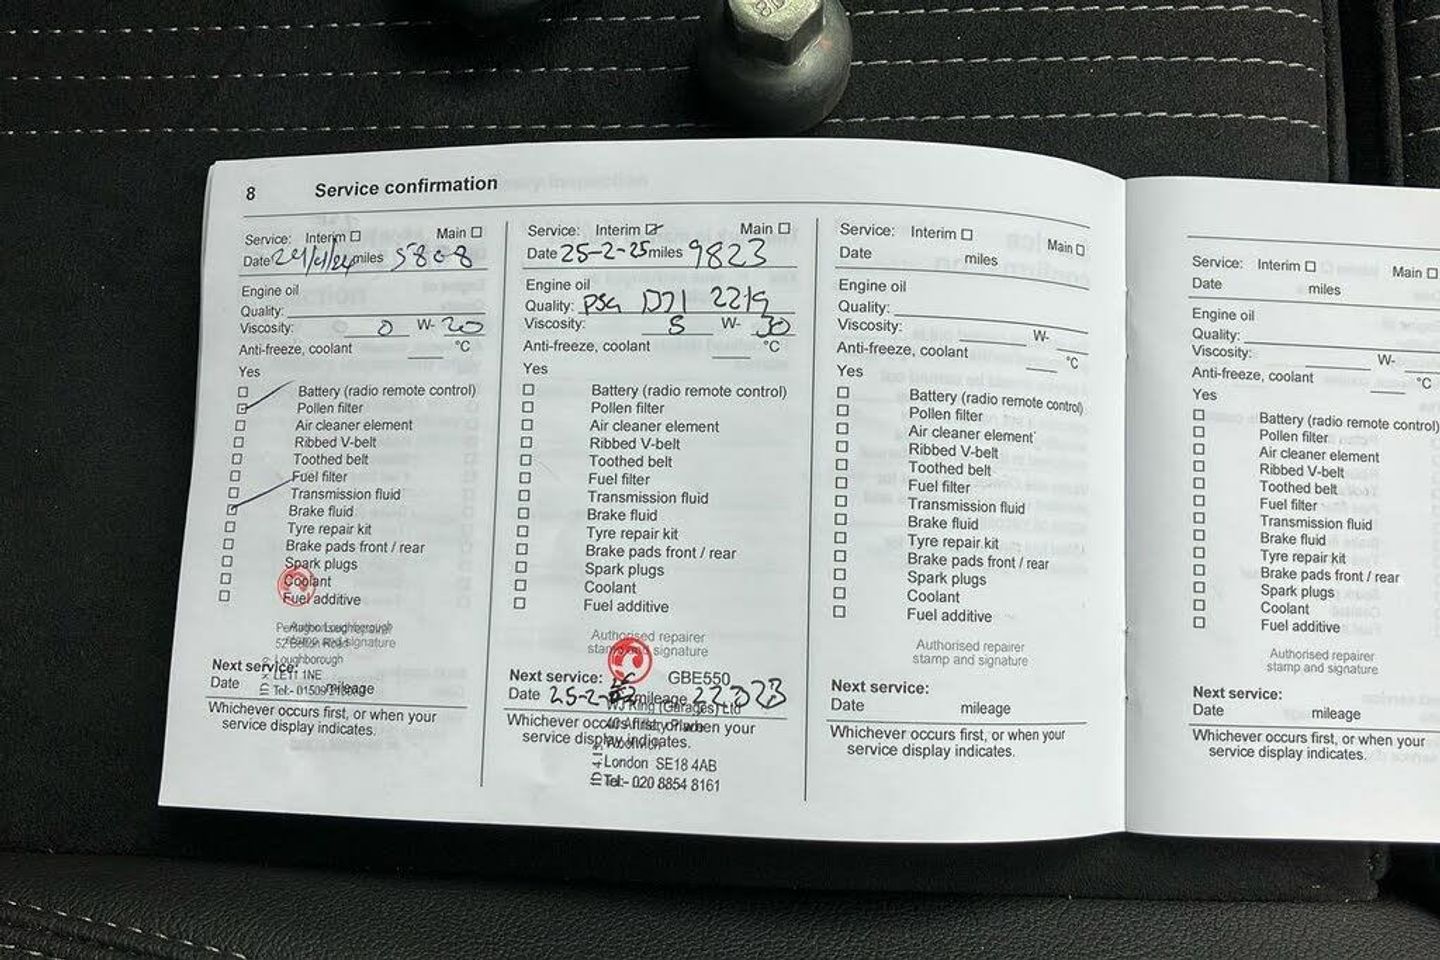 8 Service confirmation
Service: Interim Main
Date 24/4/24 miles 5808
Engine oil
Quality:
Viscosity: 0 W- 20
Anti-freeze, coolant °C
Yes
Battery (radio remote control)
Pollen filter
Air cleaner element
Ribbed V-belt
Toothed belt
Fuel filter
Transmission fluid
Brake fluid
Tyre repair kit
Brake pads front / rear
Spark plugs
Coolant
Fuel additive
Loughborough
LE11 1NE
Tel:- 01509
Next service:
Date mileage
Whichever occurs first, or when your
service display indicates.
Service: Interim Main
Date 25-2-25 miles 9823
Engine oil
Quality: PSA D71 2219
Viscosity: 5 W- 30
Anti-freeze, coolant °C
Yes
Battery (radio remote control)
Pollen filter
Air cleaner element
Ribbed V-belt
Toothed belt
Fuel filter
Transmission fluid
Brake fluid
Tyre repair kit
Brake pads front / rear
Spark plugs
Coolant
Fuel additive
Authorised repairer
stamp and signature
GBE550
Next service:
Date 25-2- mileage 22023
WJ King (Garages) Ltd
Whichever occurs first, or when your
service display indicates.
Woolwich
London SE18 4AB
Tel:- 020 8854 8161
Service: Interim Main
Date miles
Engine oil
Quality:
Viscosity: W-
Anti-freeze, coolant °C
Yes
Battery (radio remote control)
Pollen filter
Air cleaner element
Ribbed V-belt
Toothed belt
Fuel filter
Transmission fluid
Brake fluid
Tyre repair kit
Brake pads front / rear
Spark plugs
Coolant
Fuel additive
Authorised repairer
stamp and signature
Next service:
Date mileage
Whichever occurs first, or when your
service display indicates.
Service: Interim Main
Date miles
Engine oil
Quality:
Viscosity: W-
Anti-freeze, coolant °C
Yes
Battery (radio remote control)
Pollen filter
Air cleaner element
Ribbed V-belt
Toothed belt
Fuel filter
Transmission fluid
Brake fluid
Tyre repair kit
Brake pads front / rear
Spark plugs
Coolant
Fuel additive
Authorised repairer
stamp and signature
Next service:
Date mileage
Whichever occurs first, or when your
service display indicates.